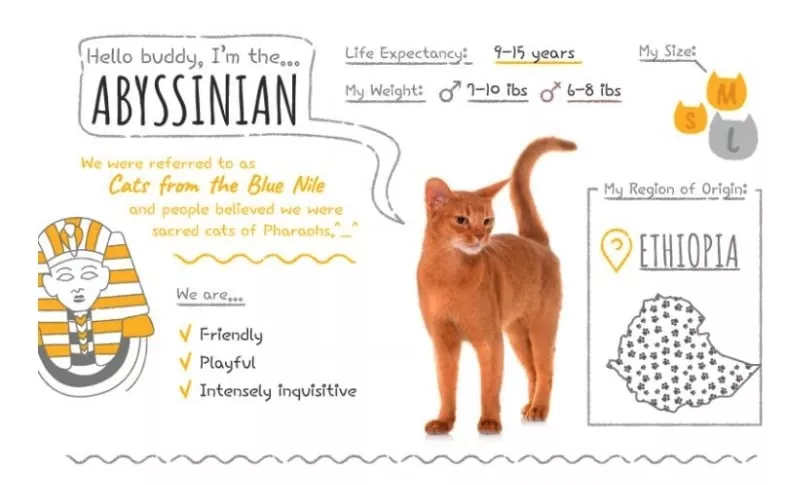 Hello buddy, I'm the...
ABYSSINIAN
Life Expectancy: 9-15 years
My Weight: ♂ 7-10 ibs ♀ 6-8 ibs
My Size:
M
S
L
We were referred to as
Cats from the Blue Nile
and people believed we were
sacred cats of Pharaohs,^_^
We are...
✓ Friendly
✓ Playful
✓ Intensely inquisitive
My Region of Origin:
ETHIOPIA